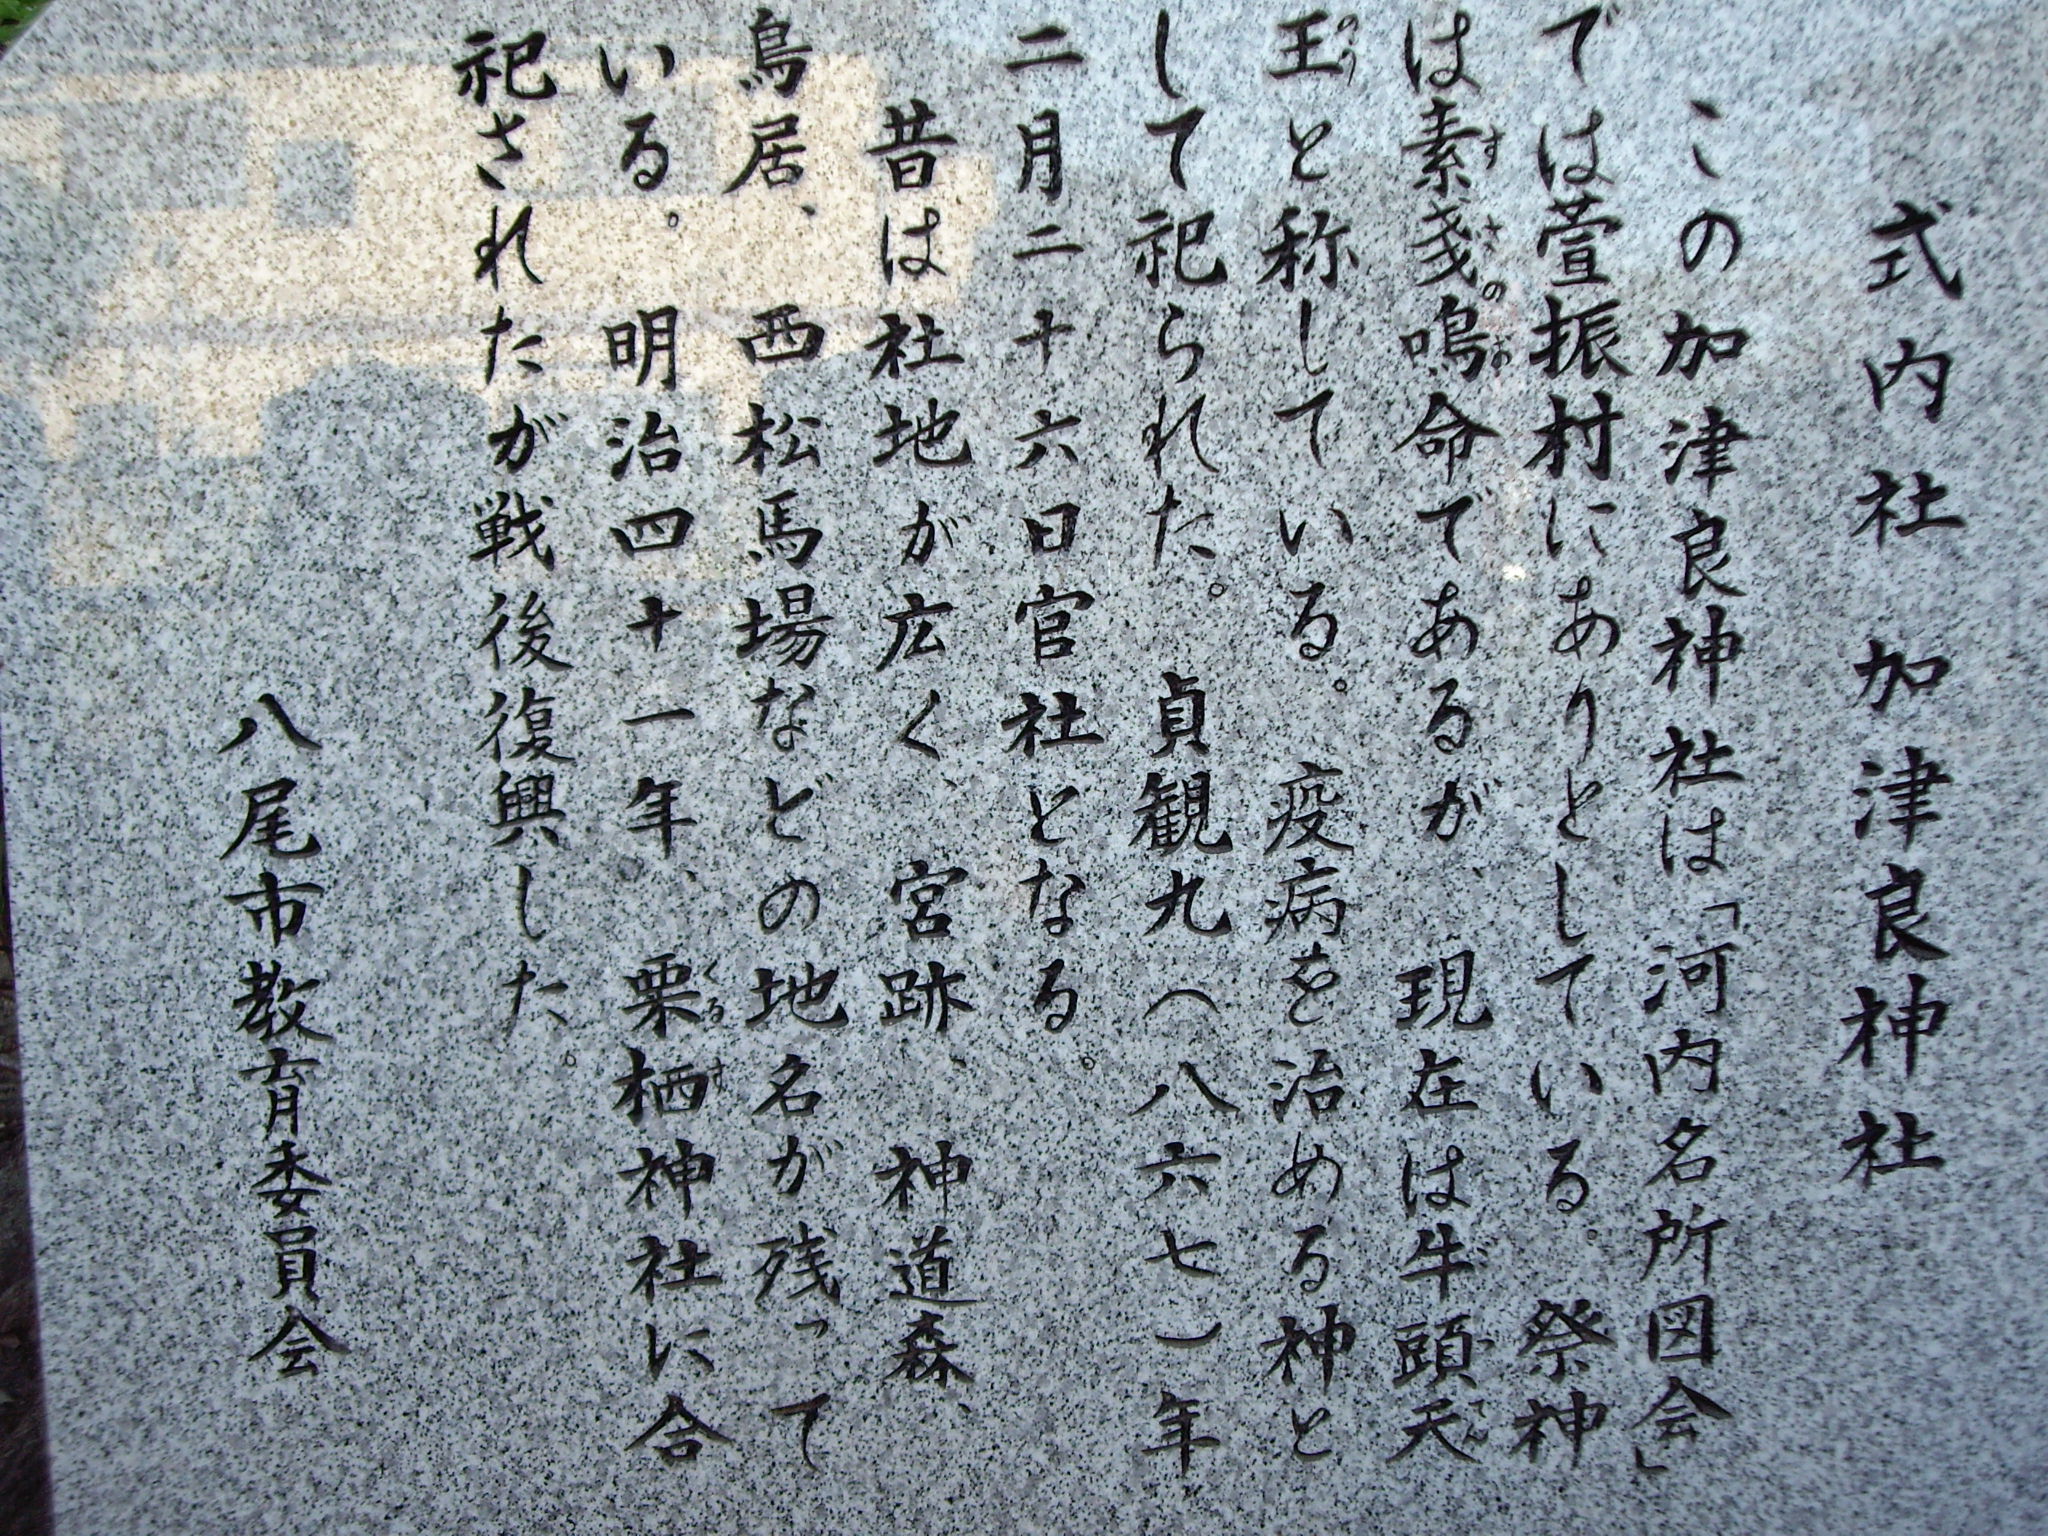 式内社 加津良神社
この加津良神社は「河内名所図会」
では萱振村にありとしている。祭神
は素戔鳴命であるが、現在は牛頭天
王と称している。疫病を治める神と
して祀られた。貞観九(八六七)年
二月二十六日官社となる。
昔は社地が広く、宮跡、神道森、
鳥居、西松馬場などの地名が残って
いる。明治四十一年、栗栖神社に合
祀されたが戦後復興した。
八尾市教育委員会